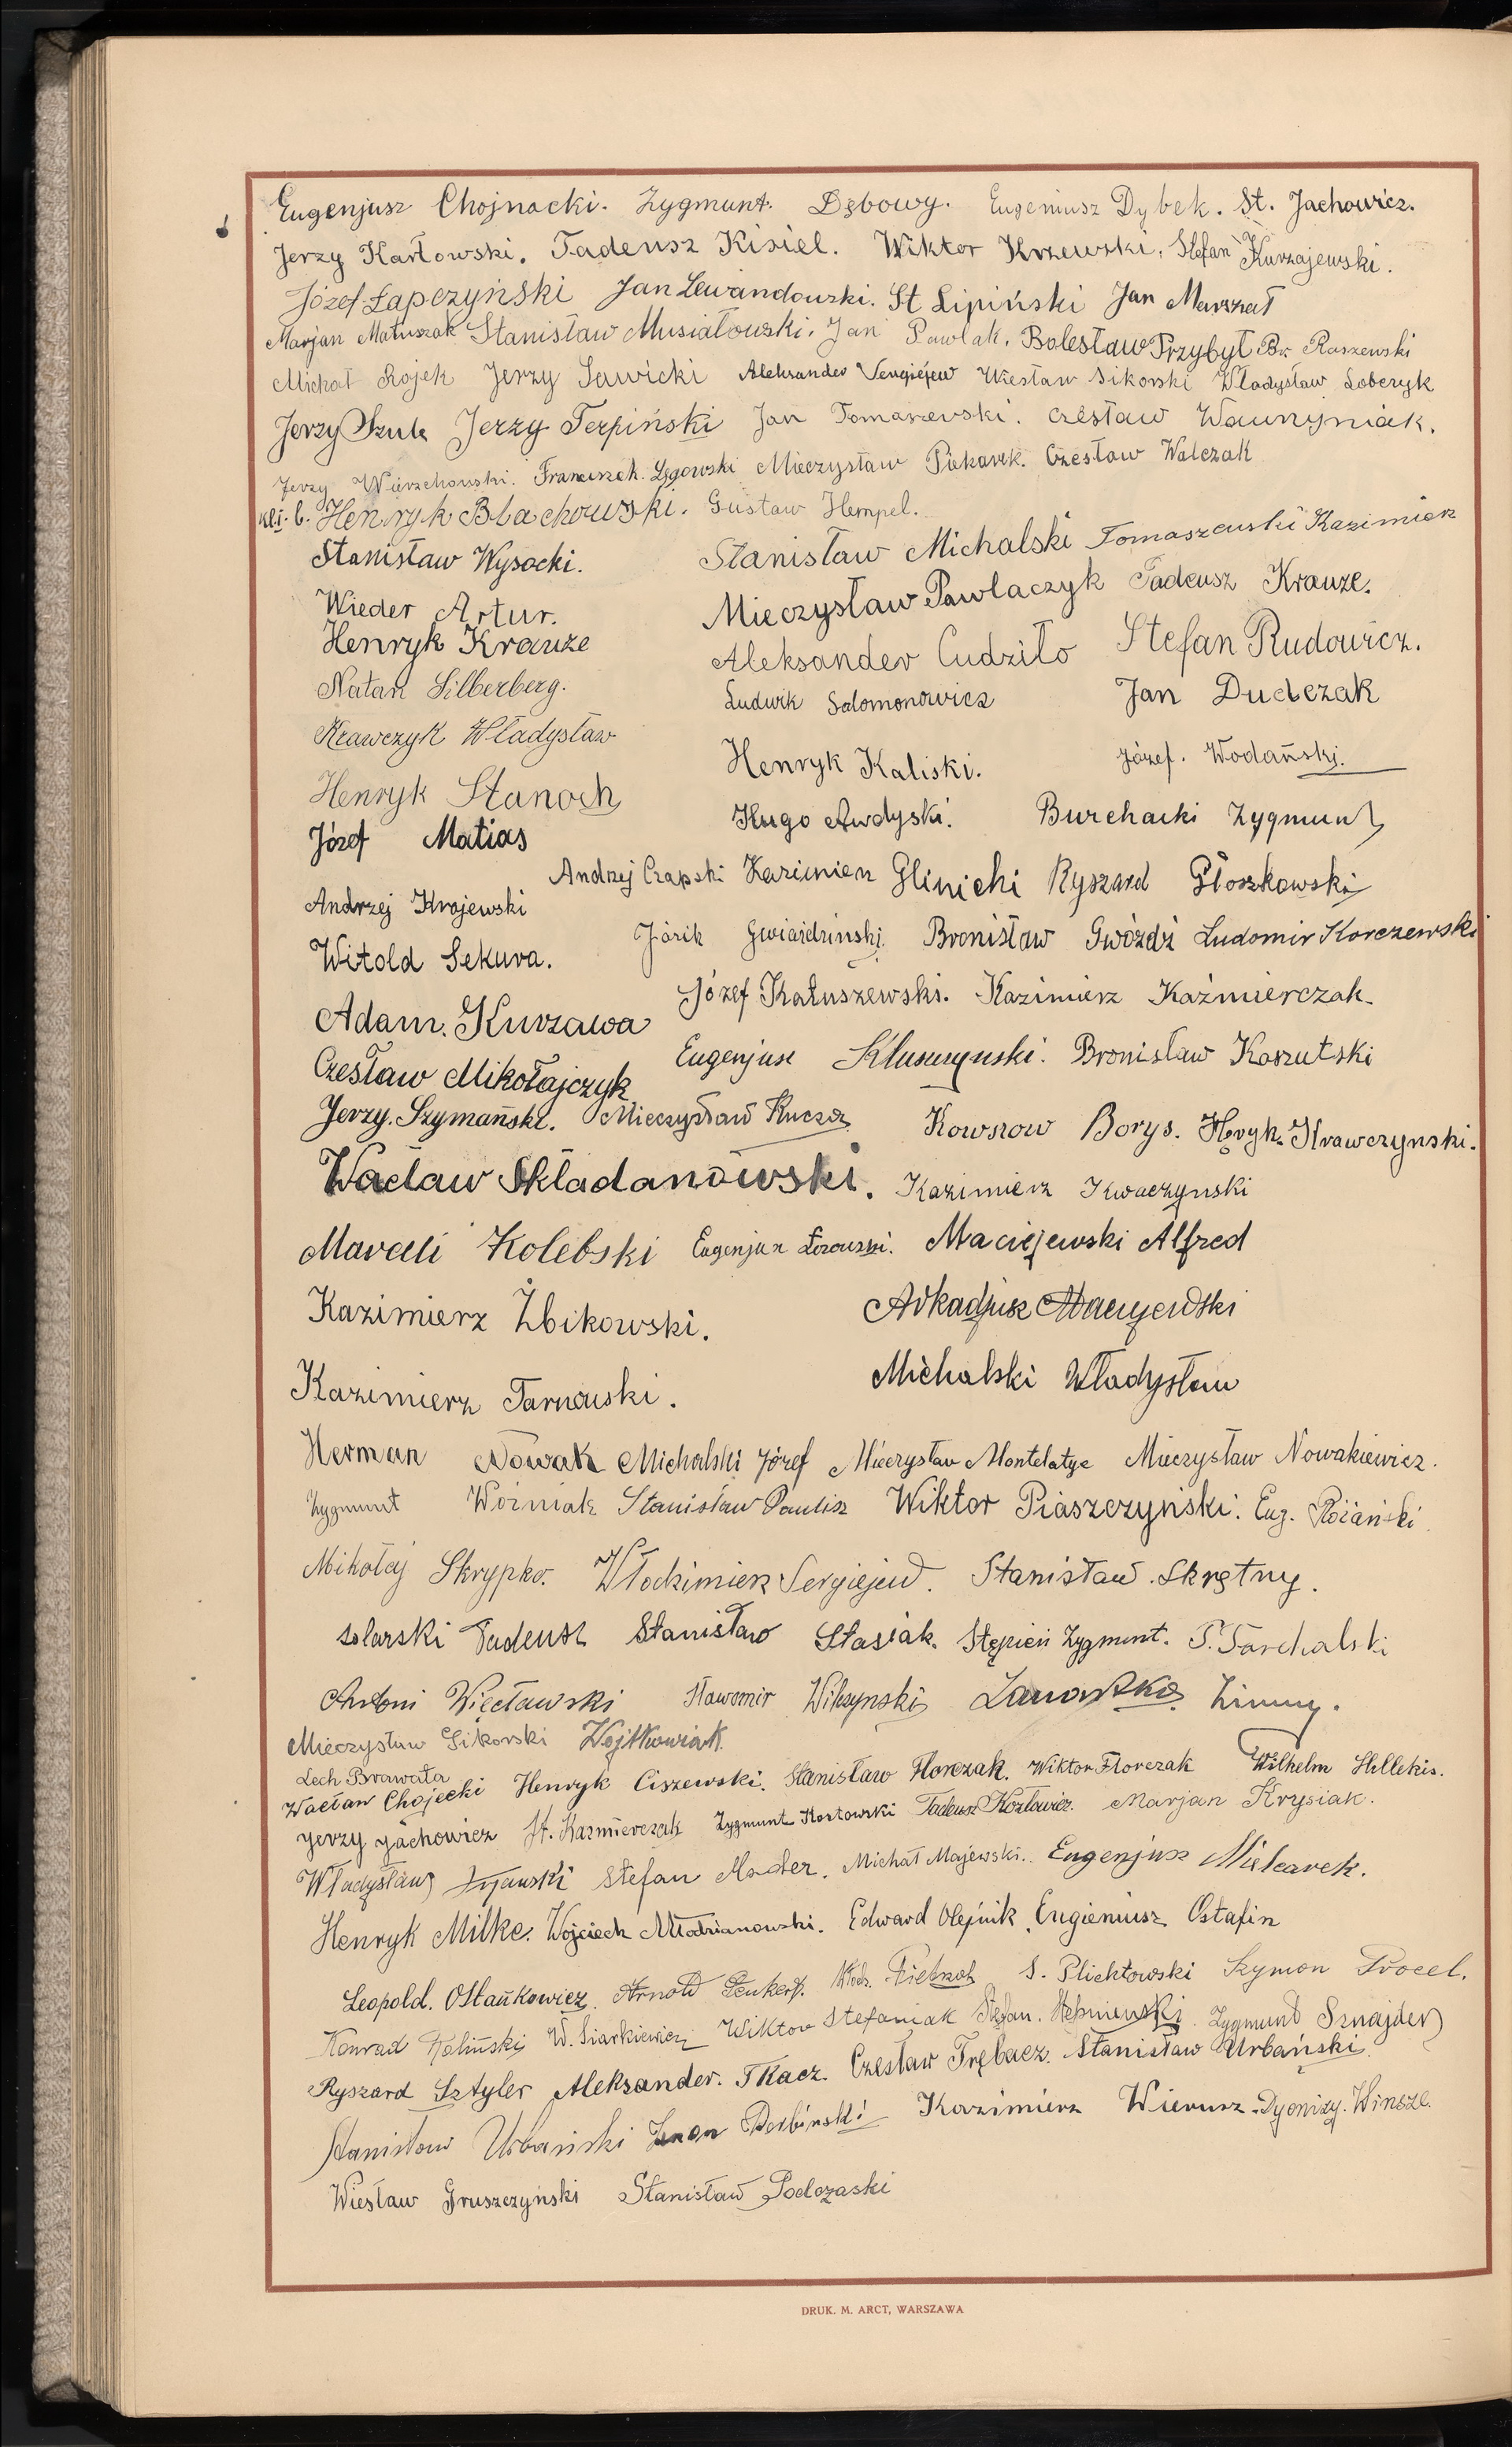 Eugenjusz Chojnacki. Zygmunt. Dębowy. Eugeniusz Dybek. St. Jachowicz.
Jerzy Karłowski. Tadeusz Kisiel. Wiktor Krzewski. Stefan Kurzajewski.
Józef Łapczyński Jan Lewandowski. St Lipiński Jan Marszał
Marjan Matuszak Stanisław Musiałowski. Jan Pawlak. Bolesław Przybył Br. Raszewski
Michał Rojek Jerzy Sawicki Aleksander Sergiejew Wiesław Sikorski Władysław Soberyk
Jerzy Szulc Jerzy Terpiński Jan Tomaszewski. Czesław Wawrzyniak.
Jerzy Wierzchowski. Franciszek. Łęgowski Mieczysław Piekarek. Czesław Walczak
kl. I. b. Henryk Blachowski. Gustaw Hempel.
Stanisław Wysocki. Stanisław Michalski Tomaszewski Kazimierz
Wieder Artur. Mieczysław Pawlaczyk Tadeusz Krauze.
Henryk Krauze Aleksander Cudziło Stefan Rudowicz.
Natan Silberberg. Ludwik Salomonowicz Jan Dudczak
Krawczyk Władysław Henryk Kaliski. Józef. Wodański.
Henryk Stanoch Hugo Awdyski. Burchacki Zygmunt
Józef Matias Andrzej Czapski Kazimierz Glinicki Ryszard Głoszkowski
Andrzej Krajewski Józik Gwiaździński Bronisław Gwóździ Ludomir Korczewski
Witold Sekura. Józef Kałuszewski. Kazimierz Kaźmierczak.
Adam. Kurzawa Eugenjusz Kluszczynski. Bronisław Koszutski
Czesław Mikołajczyk
Jerzy. Szymański. Mieczysław Kucza Kowszow Borys. Henryk. Krawczynski.
Wacław Składanowski. Kazimierz Kwaczynski
Marceli Kolebski Eugenjusz Łozowski. Maciejewski Alfred
Kazimierz Żbikowski. Arkadjusz Maciejewski
Kazimierz Tarnowski. Michalski Władysław
Herman Nowak Michalski Józef Mieczysław Montelatyc Mieczysław Nowakiewicz.
Zygmunt Woźniak Stanisław Paulisz Wiktor Piaszczyński. Eug. Różański
Mikołaj Skrypko. Włodzimierz Sergiejew. Stanisław Skrętny.
Solarski Tadeusz Stanisław Stasiak. Stępień Zygmunt. T. Tarchalski
Antoni Więcławski Sławomir Wilczynski Zimny.
Mieczysław Sikorski Wojtkowiak.
Lech Brawata
Wacław Chojecki Henryk Ciszewski. Stanisław Florczak. Wiktor Florczak Wilhelm Hillekis.
Jerzy Jachowicz St. Kazmierczak Zygmunt Kostowski Tadeusz Kozłowicz. Marjan Krysiak.
Władysław Stefan Mader. Michał Majewski. Eugenjusz Mielcarek.
Henryk Milke. Wojciech Młodzianowski. Edward Olejnik Eugieniusz Ostafin
Leopold. Ostańkowicz. Arnold Penkert. Włodz. Pietrzak S. Plichtowski Szymon Procel.
Konrad W. Siarkiewicz Wiktor Stefaniak Stefan. Stępniewski. Zygmunt Sznajder
Ryszard Sztyler Aleksander. Tkacz. Czesław Trębacz. Stanisław Urbański.
Stanisław Urbański Zenon Kazimierz Wierusz. Dyonizy. Winsze.
Wiesław Gruszczyński Stanisław Podczaski
DRUK. M. ARCT, WARSZAWA